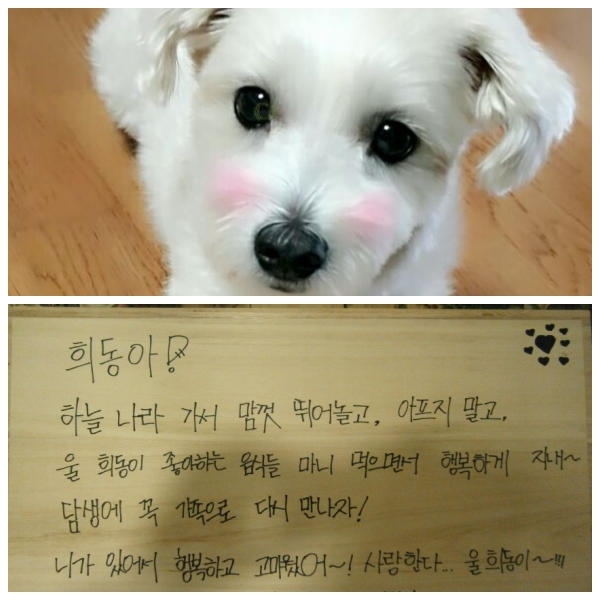 희동아!
하늘 나라 가서 맘껏 뛰어놀고, 아프지 말고,
울 희동이 좋아하는 음식들 마니 먹으면서 행복하게 지내~
담생에 꼭 가족으로 다시 만나자!
니가 있어서 행복하고 고마웠어~! 사랑한다... 울 희동이~!!!